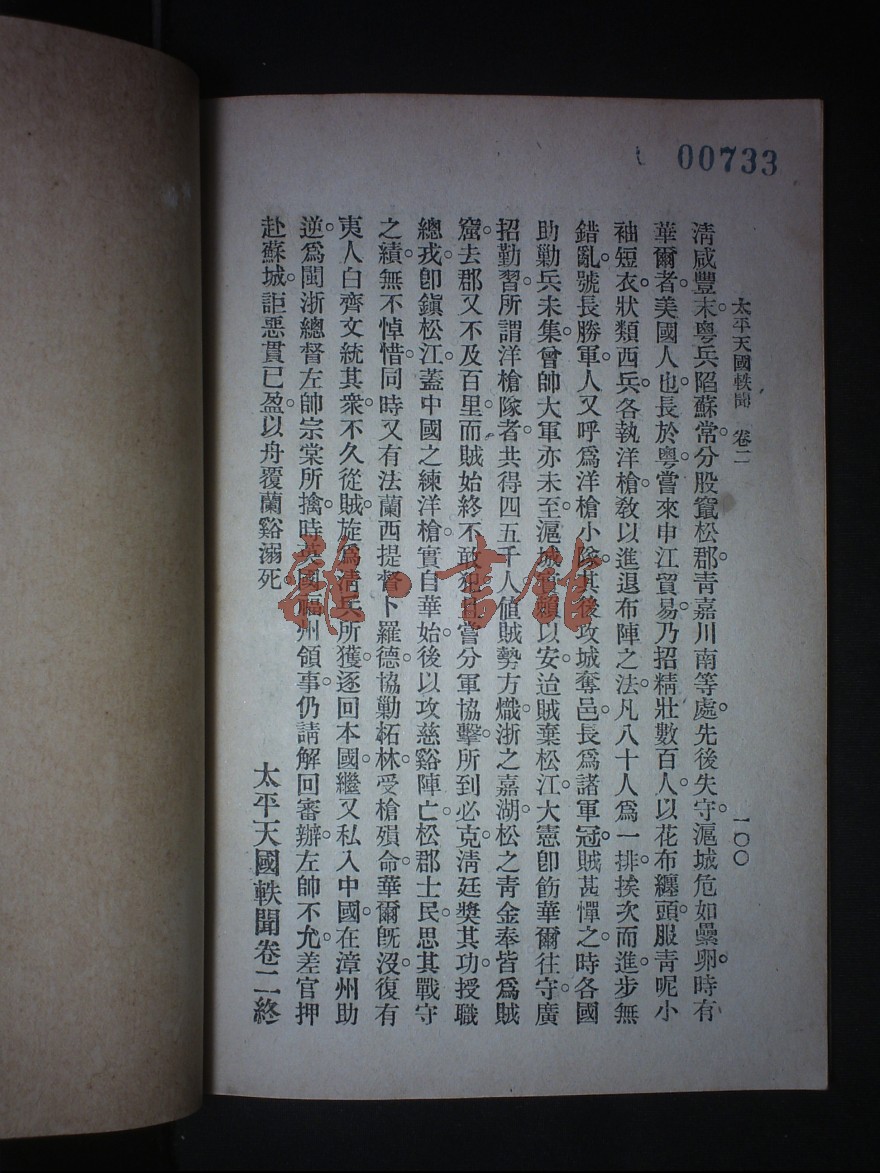 00733
太平天國軼聞　卷二　一〇〇
清咸豐末。粵兵陷蘇常。分股竄松郡。靑嘉川南等處。先後失守。滬城危如纍卵。時有
華爾者。美國人也。長於粵。嘗來申江貿易。乃招精壯數百人。以花布纏頭。服靑呢小
袖短衣。狀類西兵。各執洋槍。敎以進退布陣之法。凡八十人爲一排。挨次而進。步無
錯亂。號長勝軍。人又呼爲洋槍小隊。其後攻城奪邑。長爲諸軍冠。賊甚憚之。時各國
助勦兵未集。曾帥大軍亦未至。滬城賴以安。迨賊棄松江。大憲卽飭華爾往守。廣
招勤習。所謂洋槍隊者。共得四五千人。値賊勢方熾。浙之嘉湖。松之靑金奉皆爲賊
窟。去郡又不及百里。而賊始終不敢犯。嘗分軍協擊。所到必克。淸廷奬其功。授職
總戎。卽鎭松江。蓋中國之練洋槍。實自華始。後以攻慈谿陣亡。松郡士民。思其戰守
之績。無不悼惜。同時又有法蘭西提督卜羅德。協勦柘林。受槍殞命。華爾旣沒。復有
夷人白齊文統其衆。不久從賊。旋爲淸兵所獲。逐回本國。繼又私入中國。在漳州助
逆。爲閩浙總督左帥宗棠所擒。時英國福州領事。仍請解回審辦。左帥不允。差官押
赴蘇城。詎惡貫已盈。以舟覆蘭谿溺死
太平天國軼聞卷二終
雜·書館